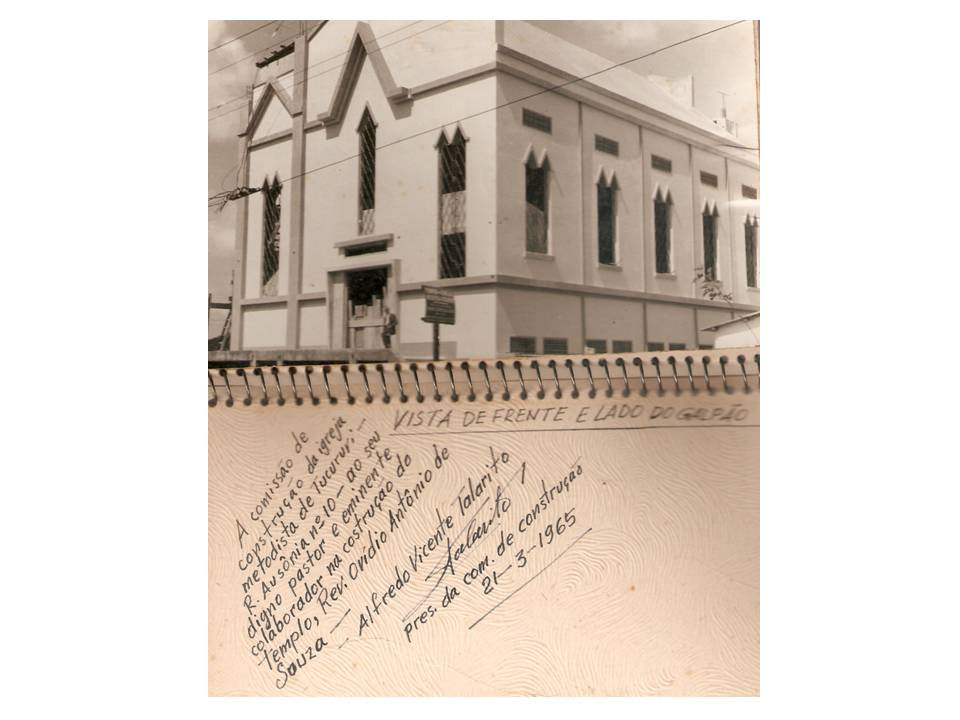 VISTA DE FRENTE E LADO DO GALPÃO
A comissão de
construção da igreja
metodista de Tucuruvi -
R. Ausônia nº 10 - ao seu
digno pastor e eminente
colaborador na costrução do
Templo, Rev. Ovídio Antônio de
Souza - Alfredo Vicente Talarito
Talarito
pres. da com. de construção
21-3-1965